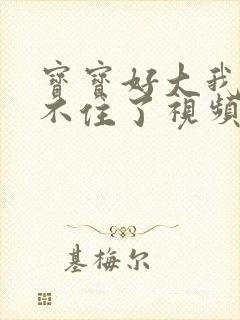 寶寶好大我
不住了視頻
基梅尔